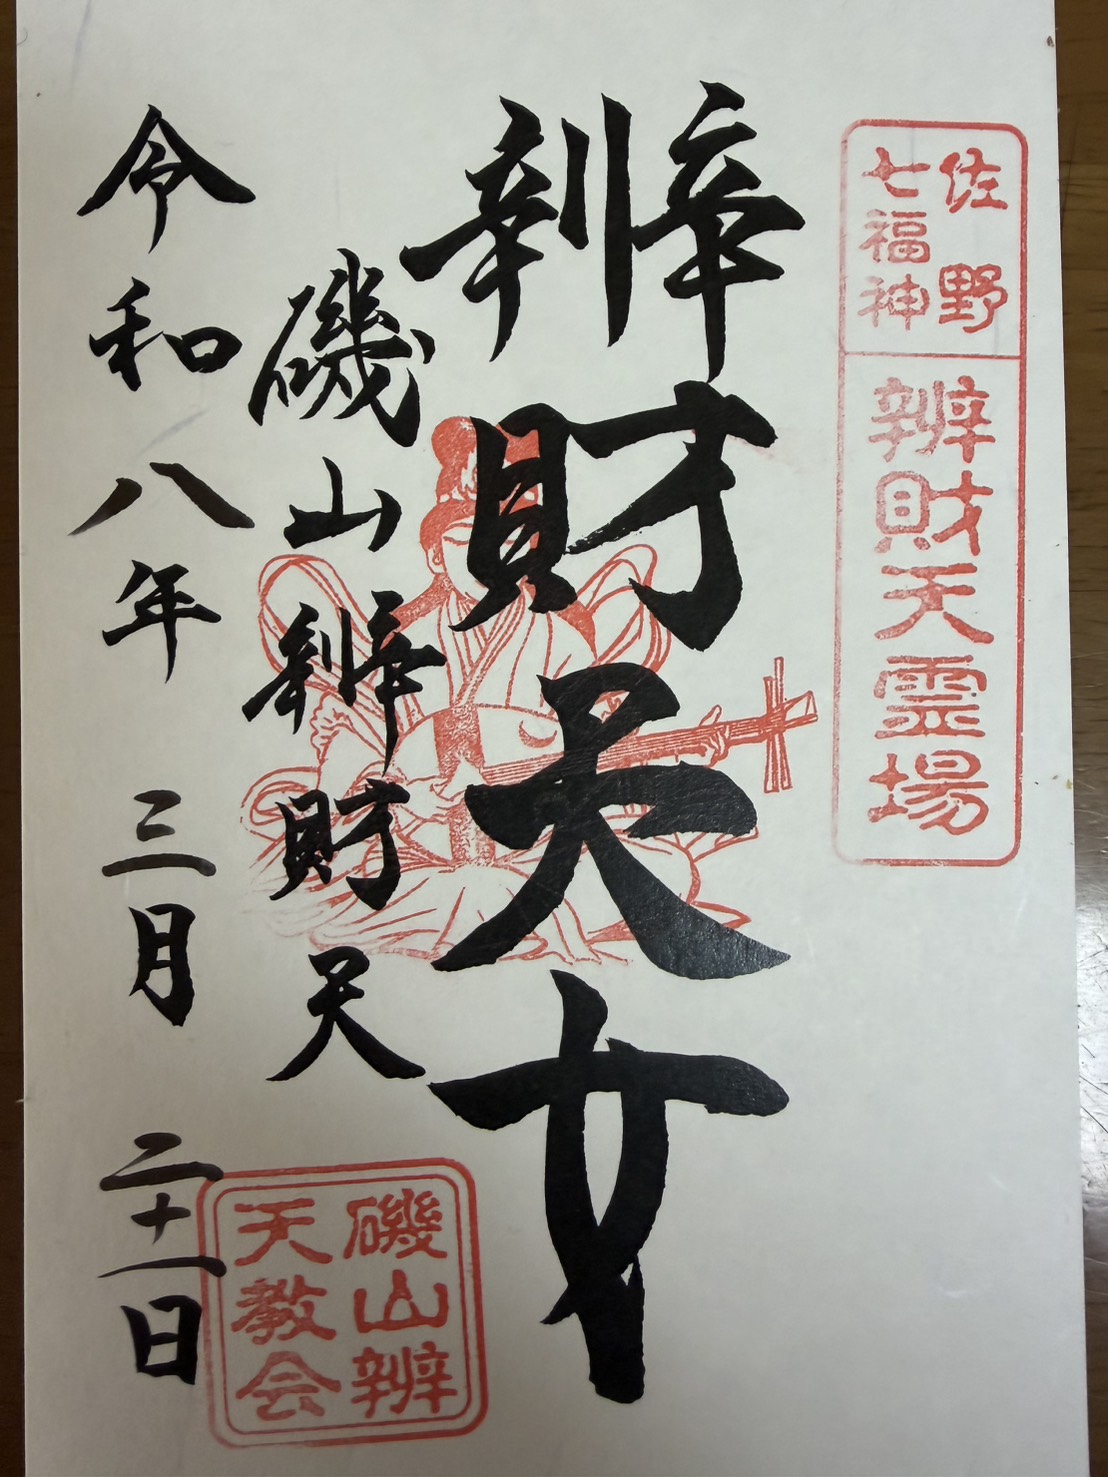 佐野
七福神
辨財天霊場
辨財天女
磯山辨財天
令和八年 三月 二十一日
磯山辨
天教会